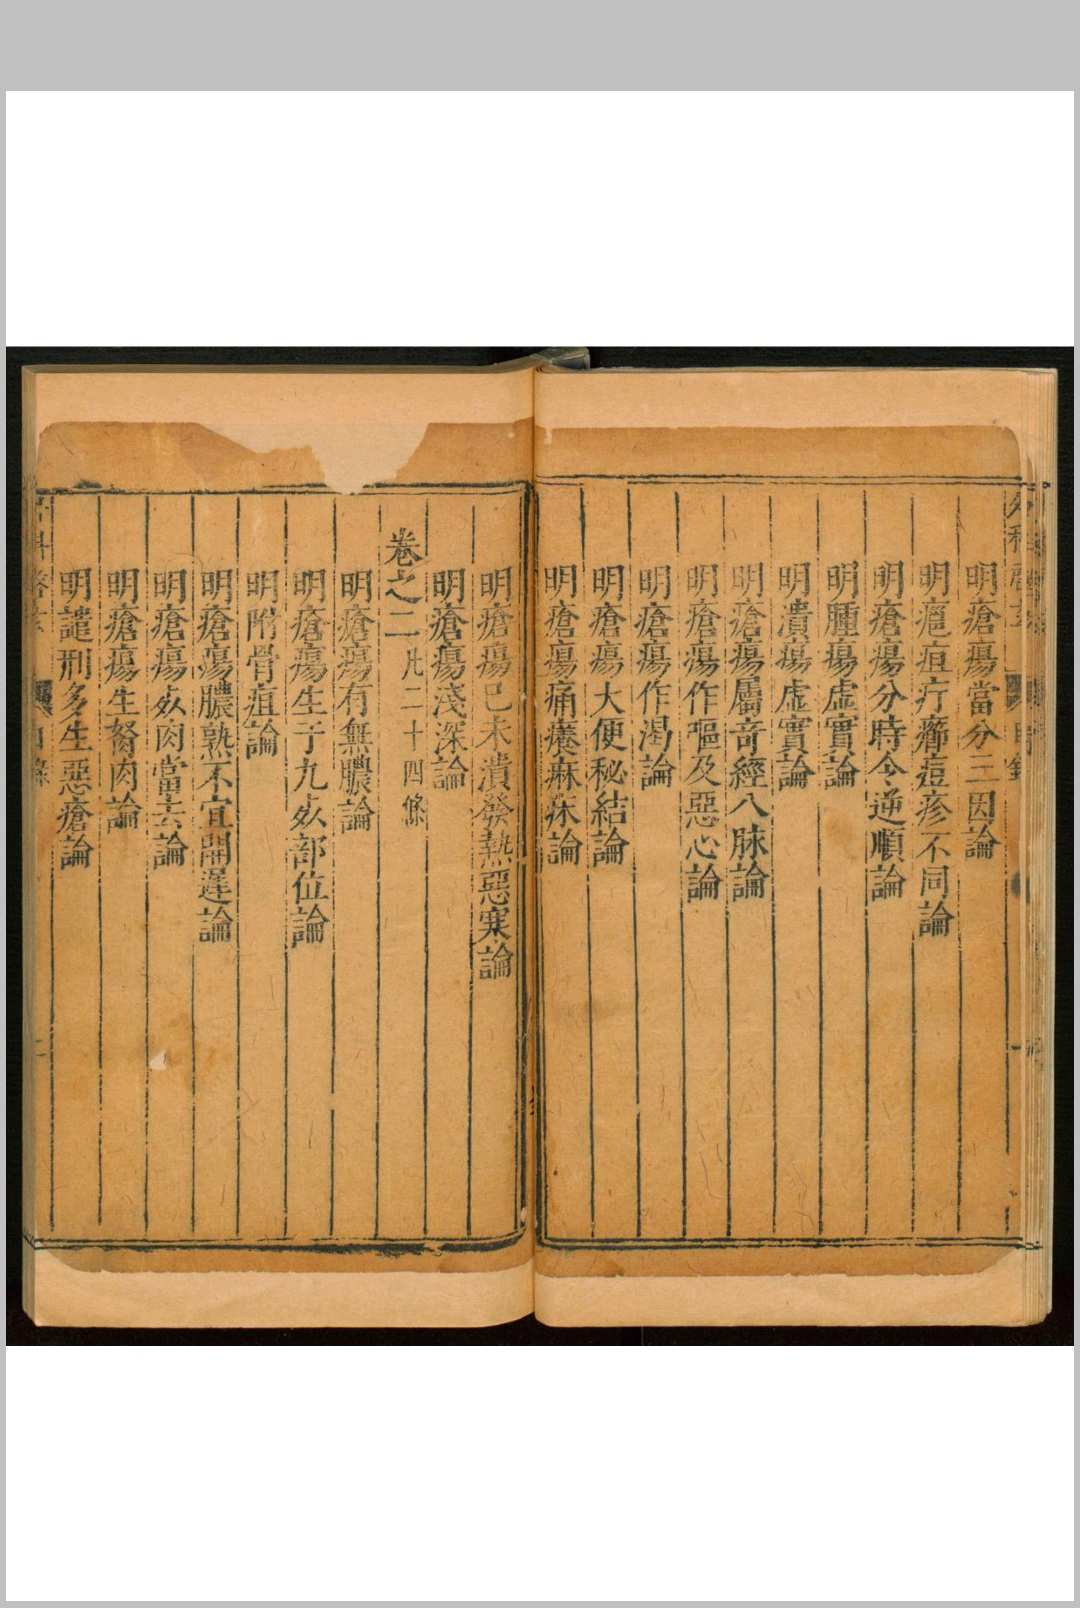 明瘡瘍當分三因論
明疤疽疔癤痘疹不同論
明瘡瘍分時令逆順論
明腫瘍虛實論
明潰瘍虛實論
明瘡瘍屬竒經八脉論
明瘡瘍作嘔及惡心論
明瘡瘍作渴論
明瘡瘍大便秘結論
明瘡瘍痛癢麻木論
明瘡瘍已未潰發熱惡寒論
明瘡瘍淺深論
卷之二 凡二十四條
明瘡瘍有無膿論
明瘡瘍生于九𣦸部位論
明附骨疽論
明瘡瘍膿熟不宜開遲論
明瘡瘍𣦸肉當去論
明瘡瘍生胬肉論
明譴刑多生惡瘡論